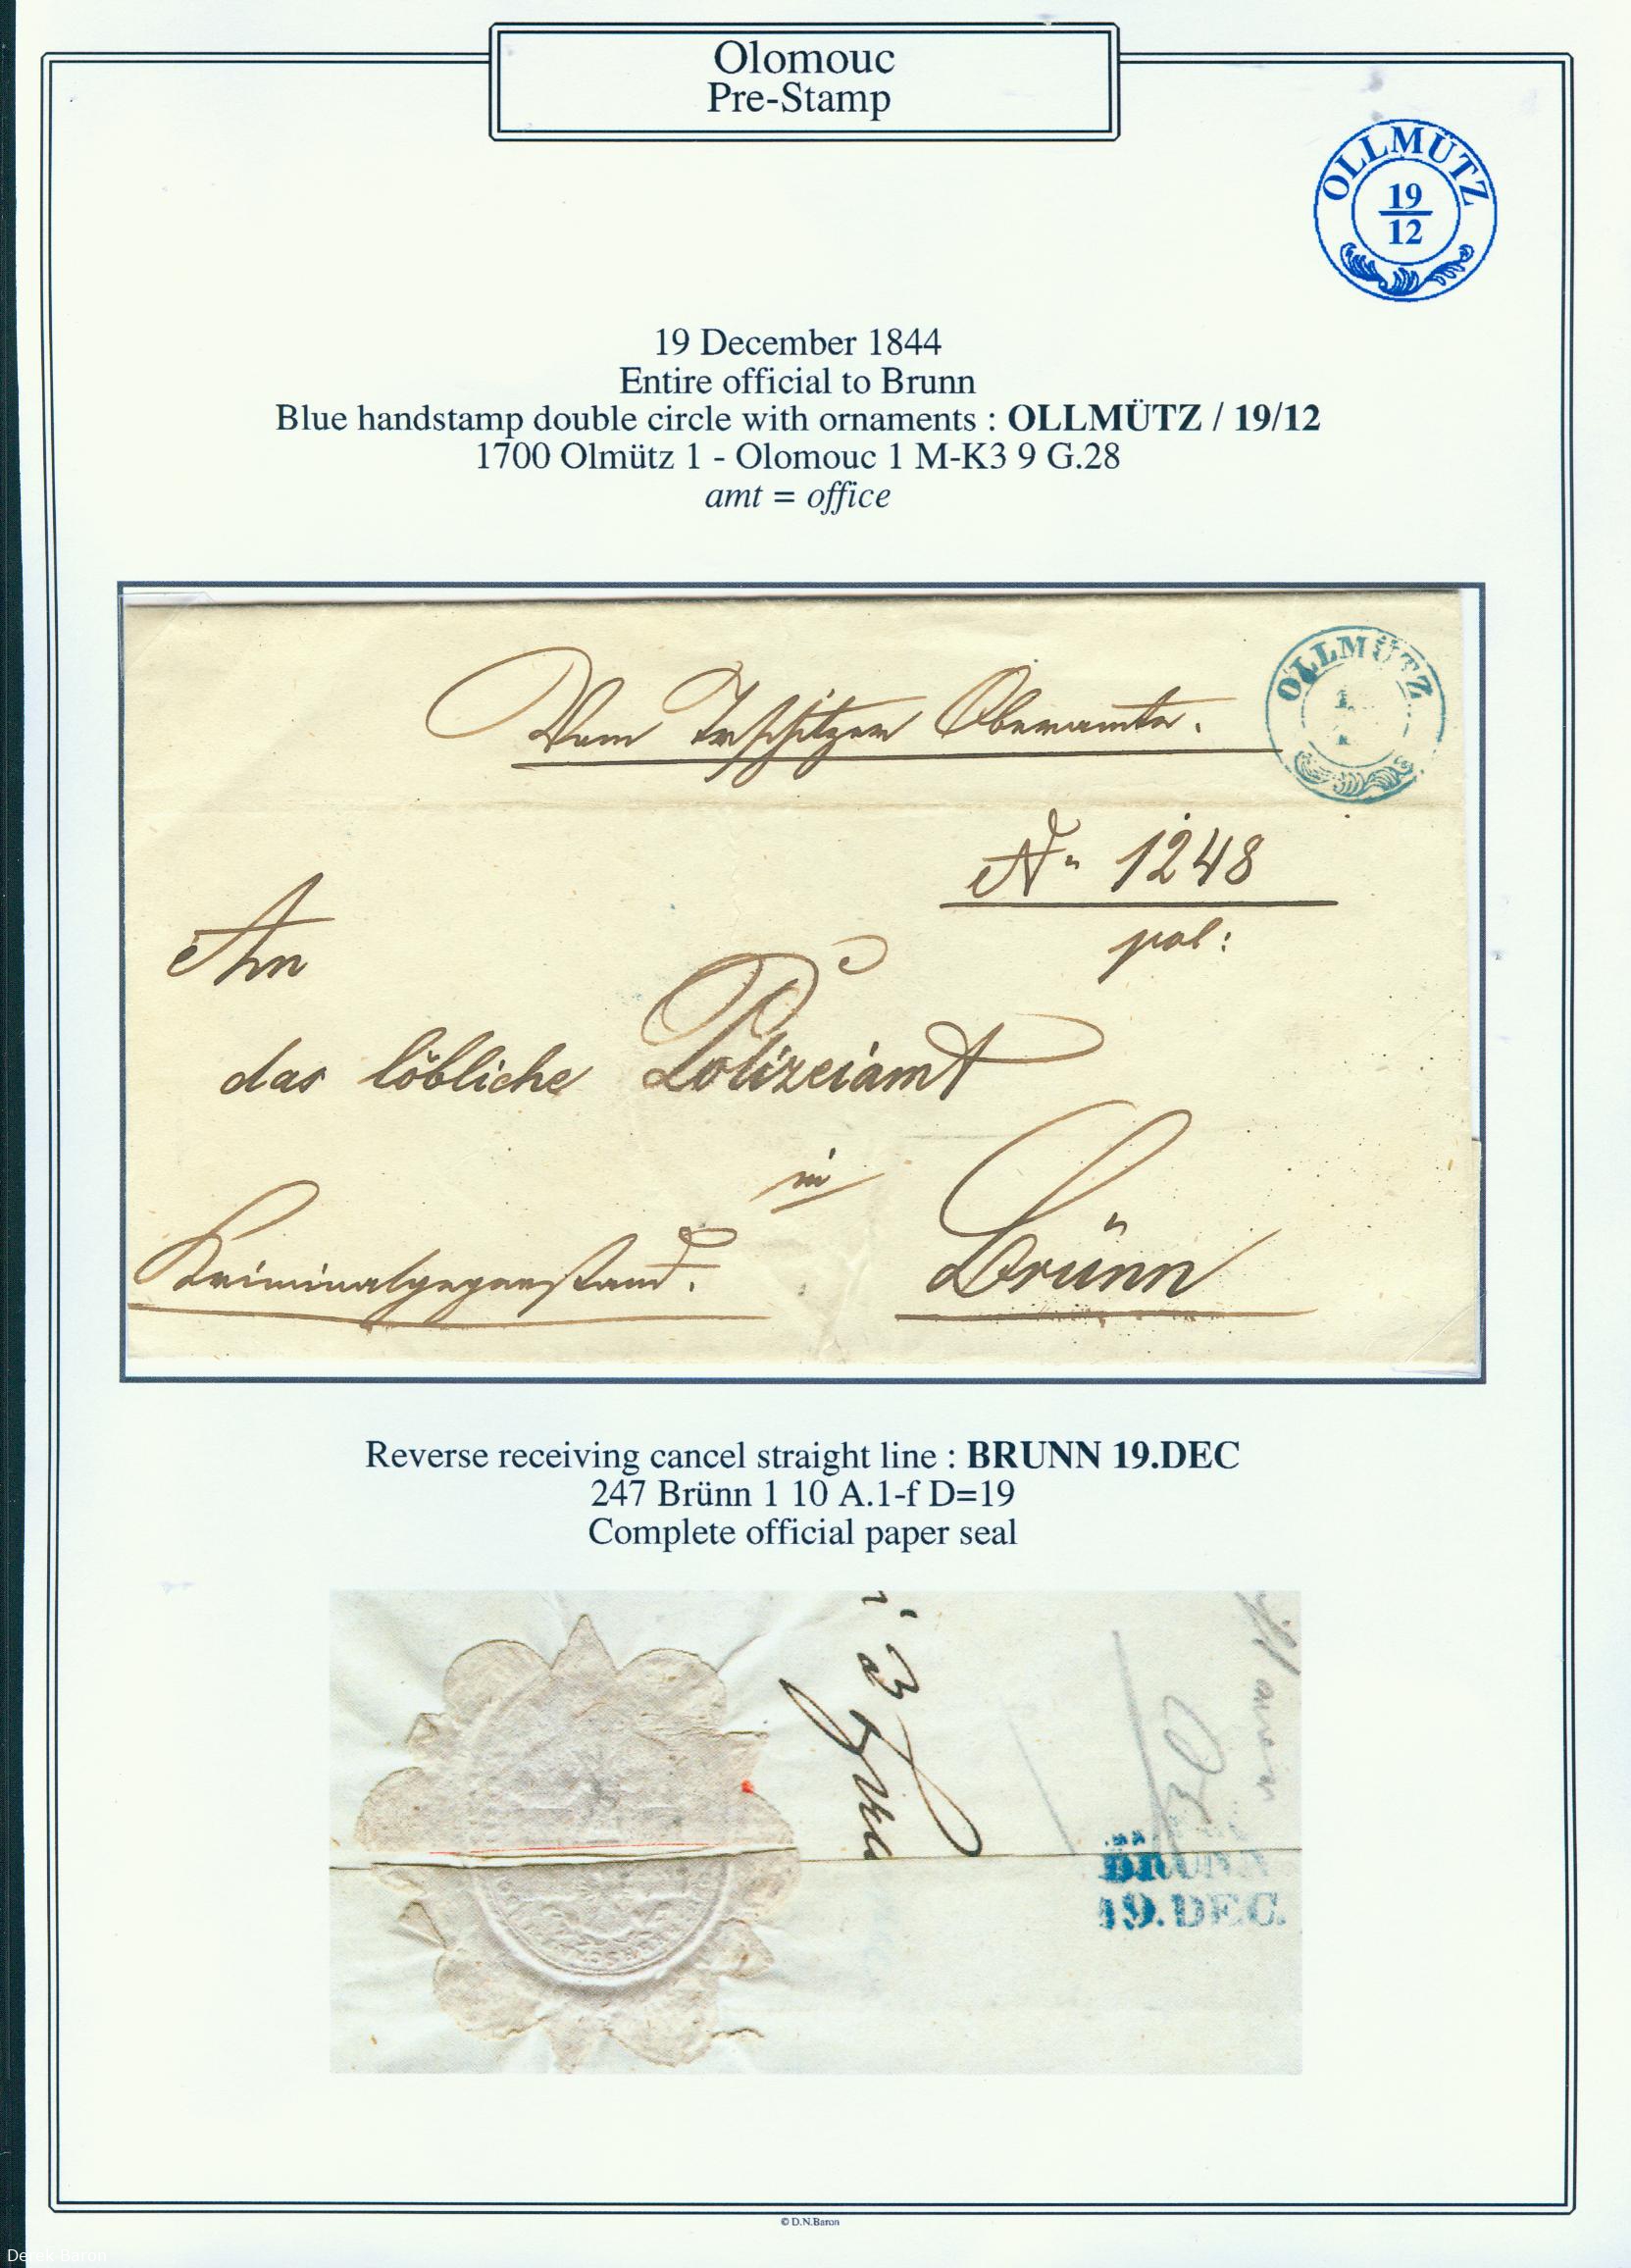 Olomouc
Pre-Stamp
OLLMÜTZ
19
12
19 December 1844
Entire official to Brunn
Blue handstamp double circle with ornaments : OLLMÜTZ / 19/12
1700 Olmütz 1 - Olomouc 1 M-K3 9 G.28
amt = office
Vom Oberamte.
OLLMÜTZ
No 1248
pol:
An
das löbliche Polizeiamt
in
Kriminalgegenstand. Brünn
Reverse receiving cancel straight line : BRUNN 19.DEC
247 Brünn 1 10 A.1-f D=19
Complete official paper seal
BRÜNN
19.DEC.
© D.N.Baron
Derek Baron